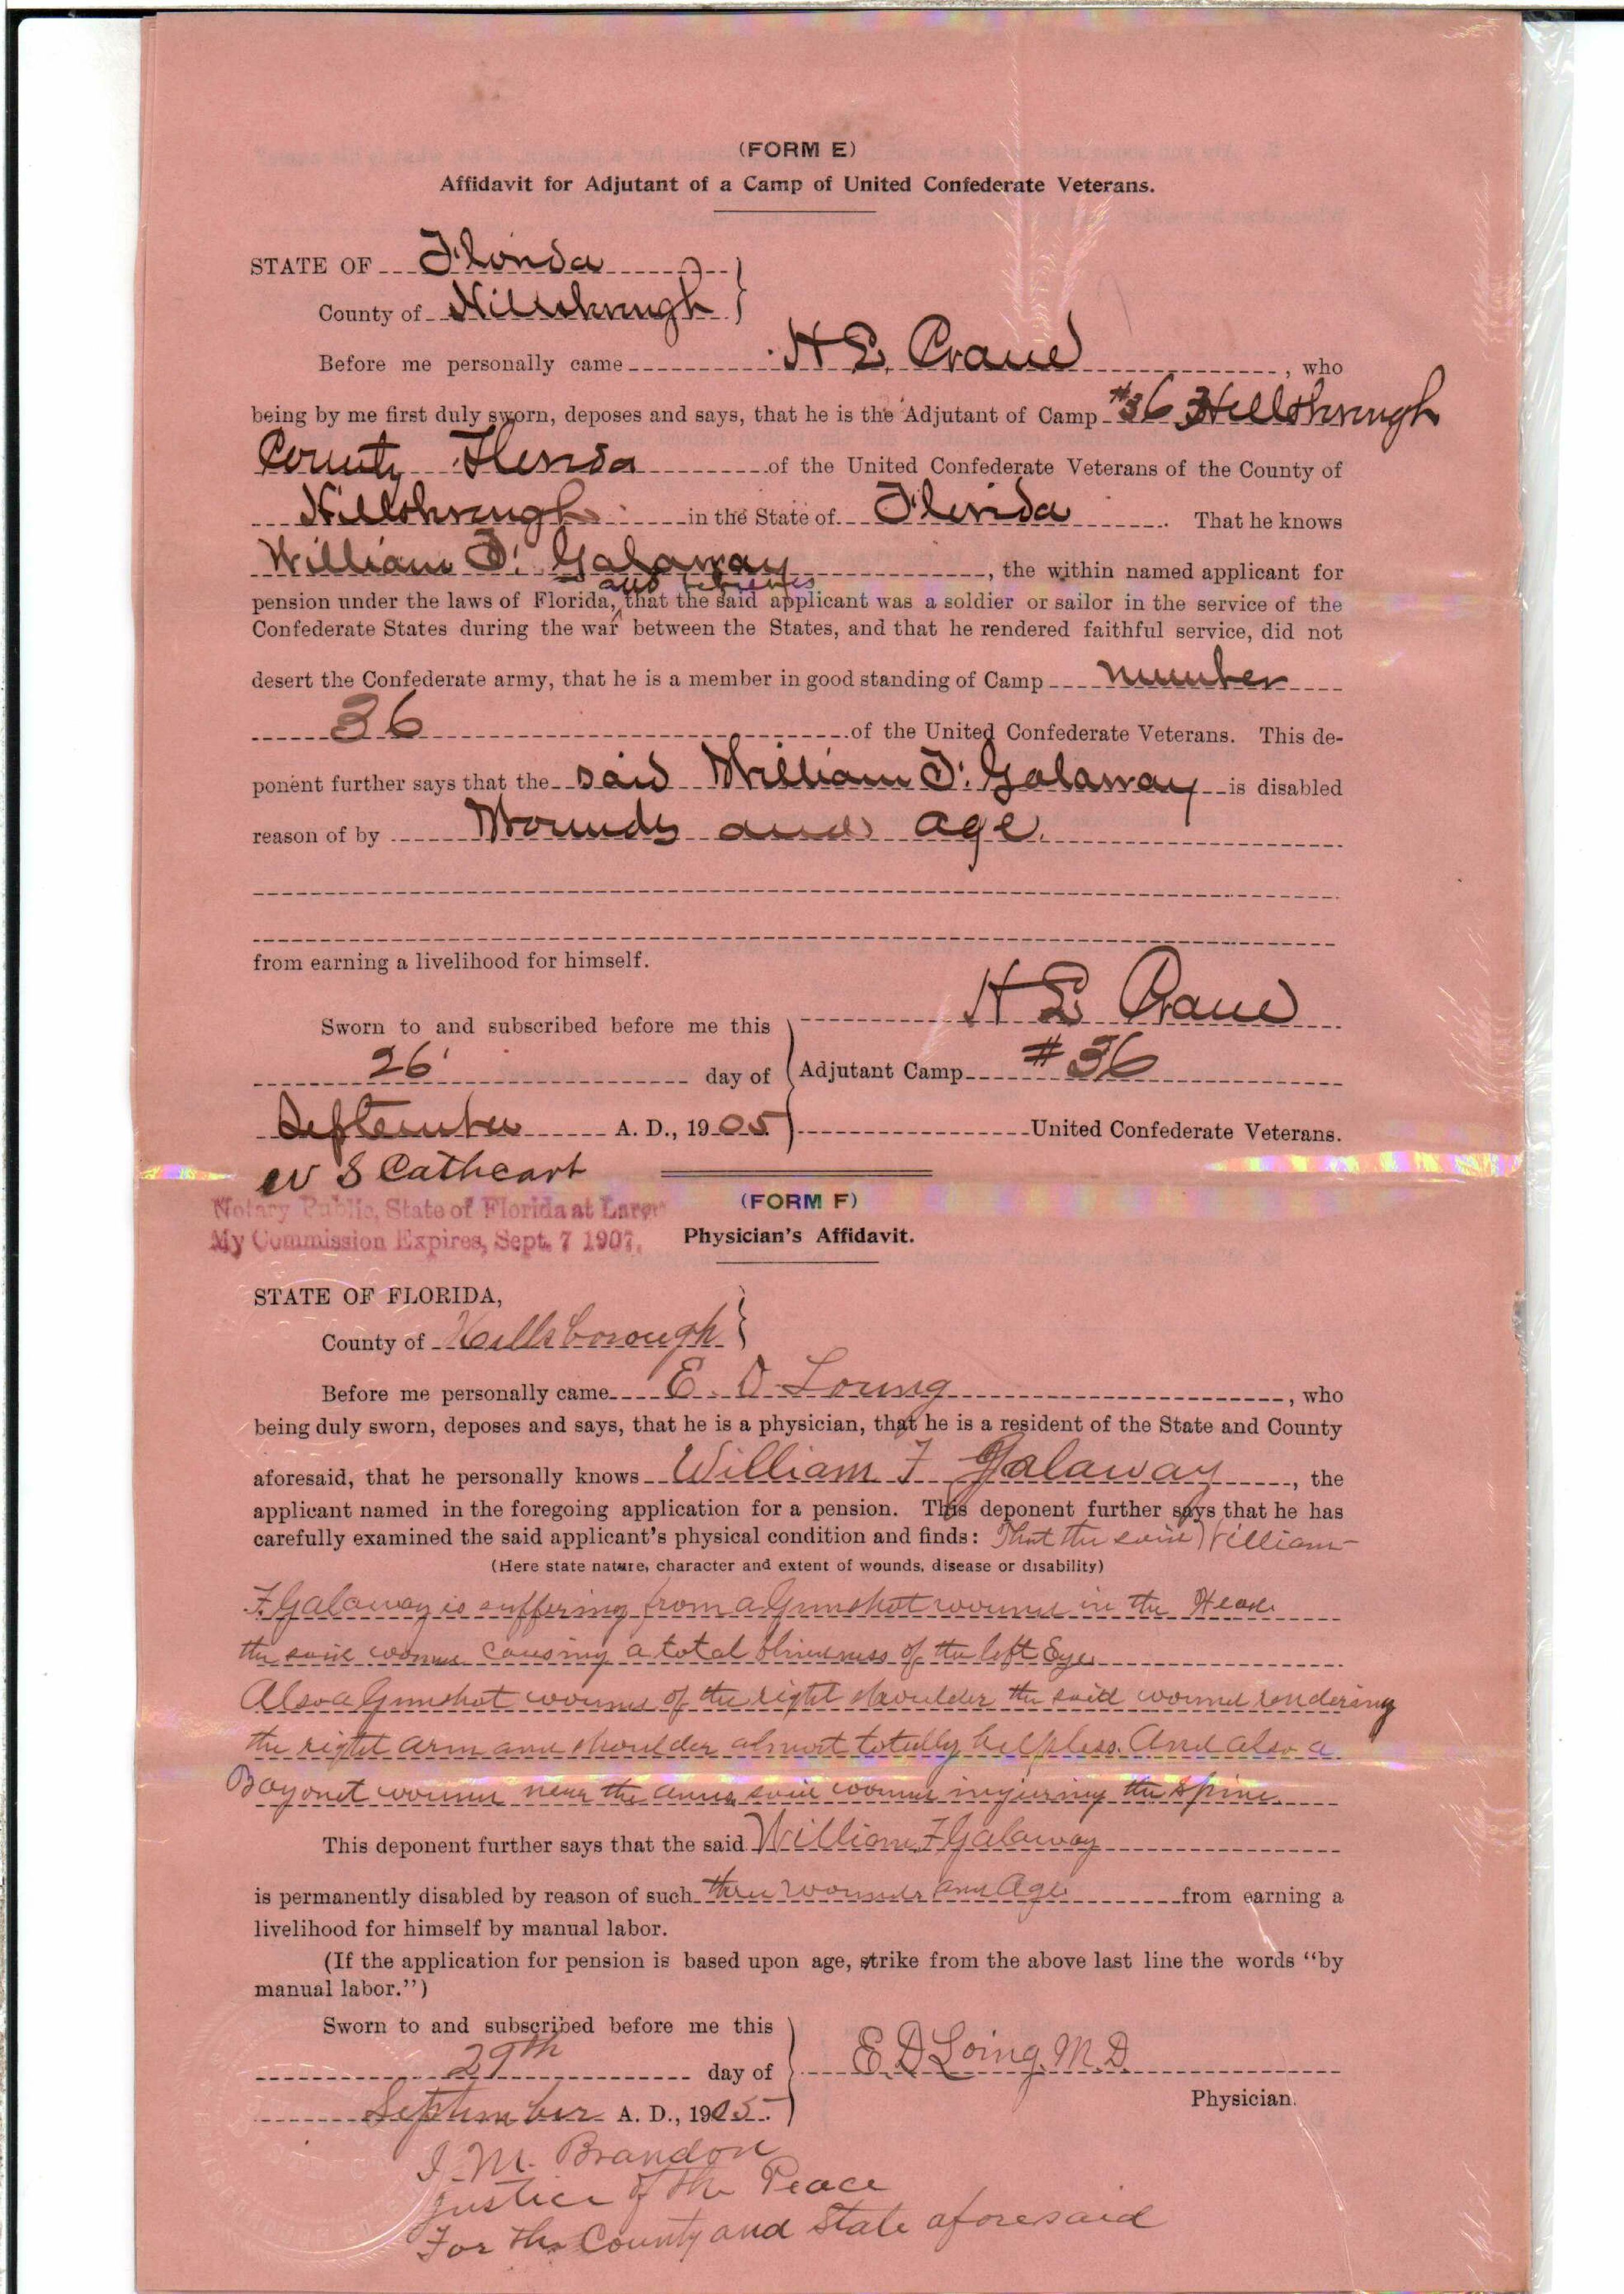 (FORM E)
Affidavit for Adjutant of a Camp of United Confederate Veterans.
STATE OF Florida
County of Hillsborough
Before me personally came H E Crane, who
being by me first duly sworn, deposes and says, that he is the Adjutant of Camp #36 Hillsborough
County Florida of the United Confederate Veterans of the County of
Hillsborough in the State of Florida. That he knows
William F. Galaway, the within named applicant for
and believes
pension under the laws of Florida, that the said applicant was a soldier or sailor in the service of the
Confederate States during the war between the States, and that he rendered faithful service, did not
desert the Confederate army, that he is a member in good standing of Camp number
36 of the United Confederate Veterans. This de-
ponent further says that the said William F. Galaway is disabled
reason of by Wounds and age.
from earning a livelihood for himself.
H E Crane
Sworn to and subscribed before me this
26 day of Adjutant Camp #36
September A. D., 1905 United Confederate Veterans.
W S Cathcart
Notary Public, State of Florida at Large
My Commission Expires, Sept. 7 1907.
(FORM F)
Physician's Affidavit.
STATE OF FLORIDA,
County of Hillsborough
Before me personally came E. D. Loing, who
being duly sworn, deposes and says, that he is a physician, that he is a resident of the State and County
aforesaid, that he personally knows William F Galaway, the
applicant named in the foregoing application for a pension. This deponent further says that he has
carefully examined the said applicant's physical condition and finds: That the said William
(Here state nature, character and extent of wounds, disease or disability)
F. Galaway is suffering from a Gunshot wound in the Head
the said wound causing a total blindness of the left Eye
Also a Gunshot wound of the right shoulder the said wound rendering
the right arm and shoulder almost totally helpless. And also a
Bayonet wound near the anus said wound injuring the Spine
This deponent further says that the said William F Galaway
is permanently disabled by reason of such wounds and Age from earning a
livelihood for himself by manual labor.
(If the application for pension is based upon age, strike from the above last line the words "by
manual labor.")
Sworn to and subscribed before me this
29th day of E D Loing, M.D.
Physician.
September A. D., 1905.
J. M. Brandon
Justice of the Peace
For the County and State aforesaid